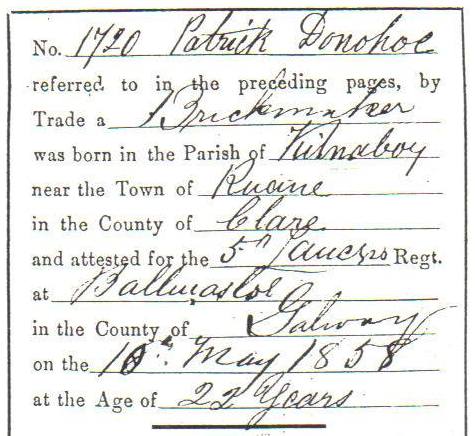 No. 1720 Patrick Donohoe
referred to in the preceding pages, by
Trade a Brickmaker
was born in the Parish of Kilnaboy
near the Town of Ruane
in the County of Clare
and attested for the 5th Lancers Regt.
at Ballinasloe
in the County of Galway
on the 10th May 1858
at the Age of 22 Years